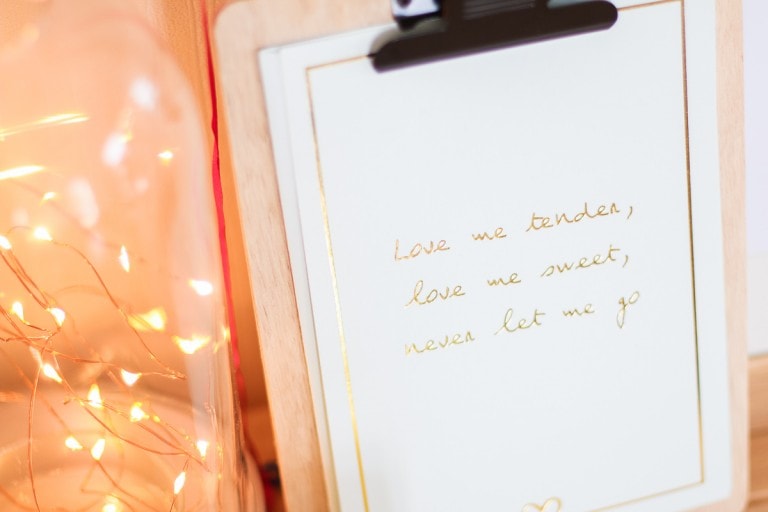 Love me tender,
love me sweet,
never let me go